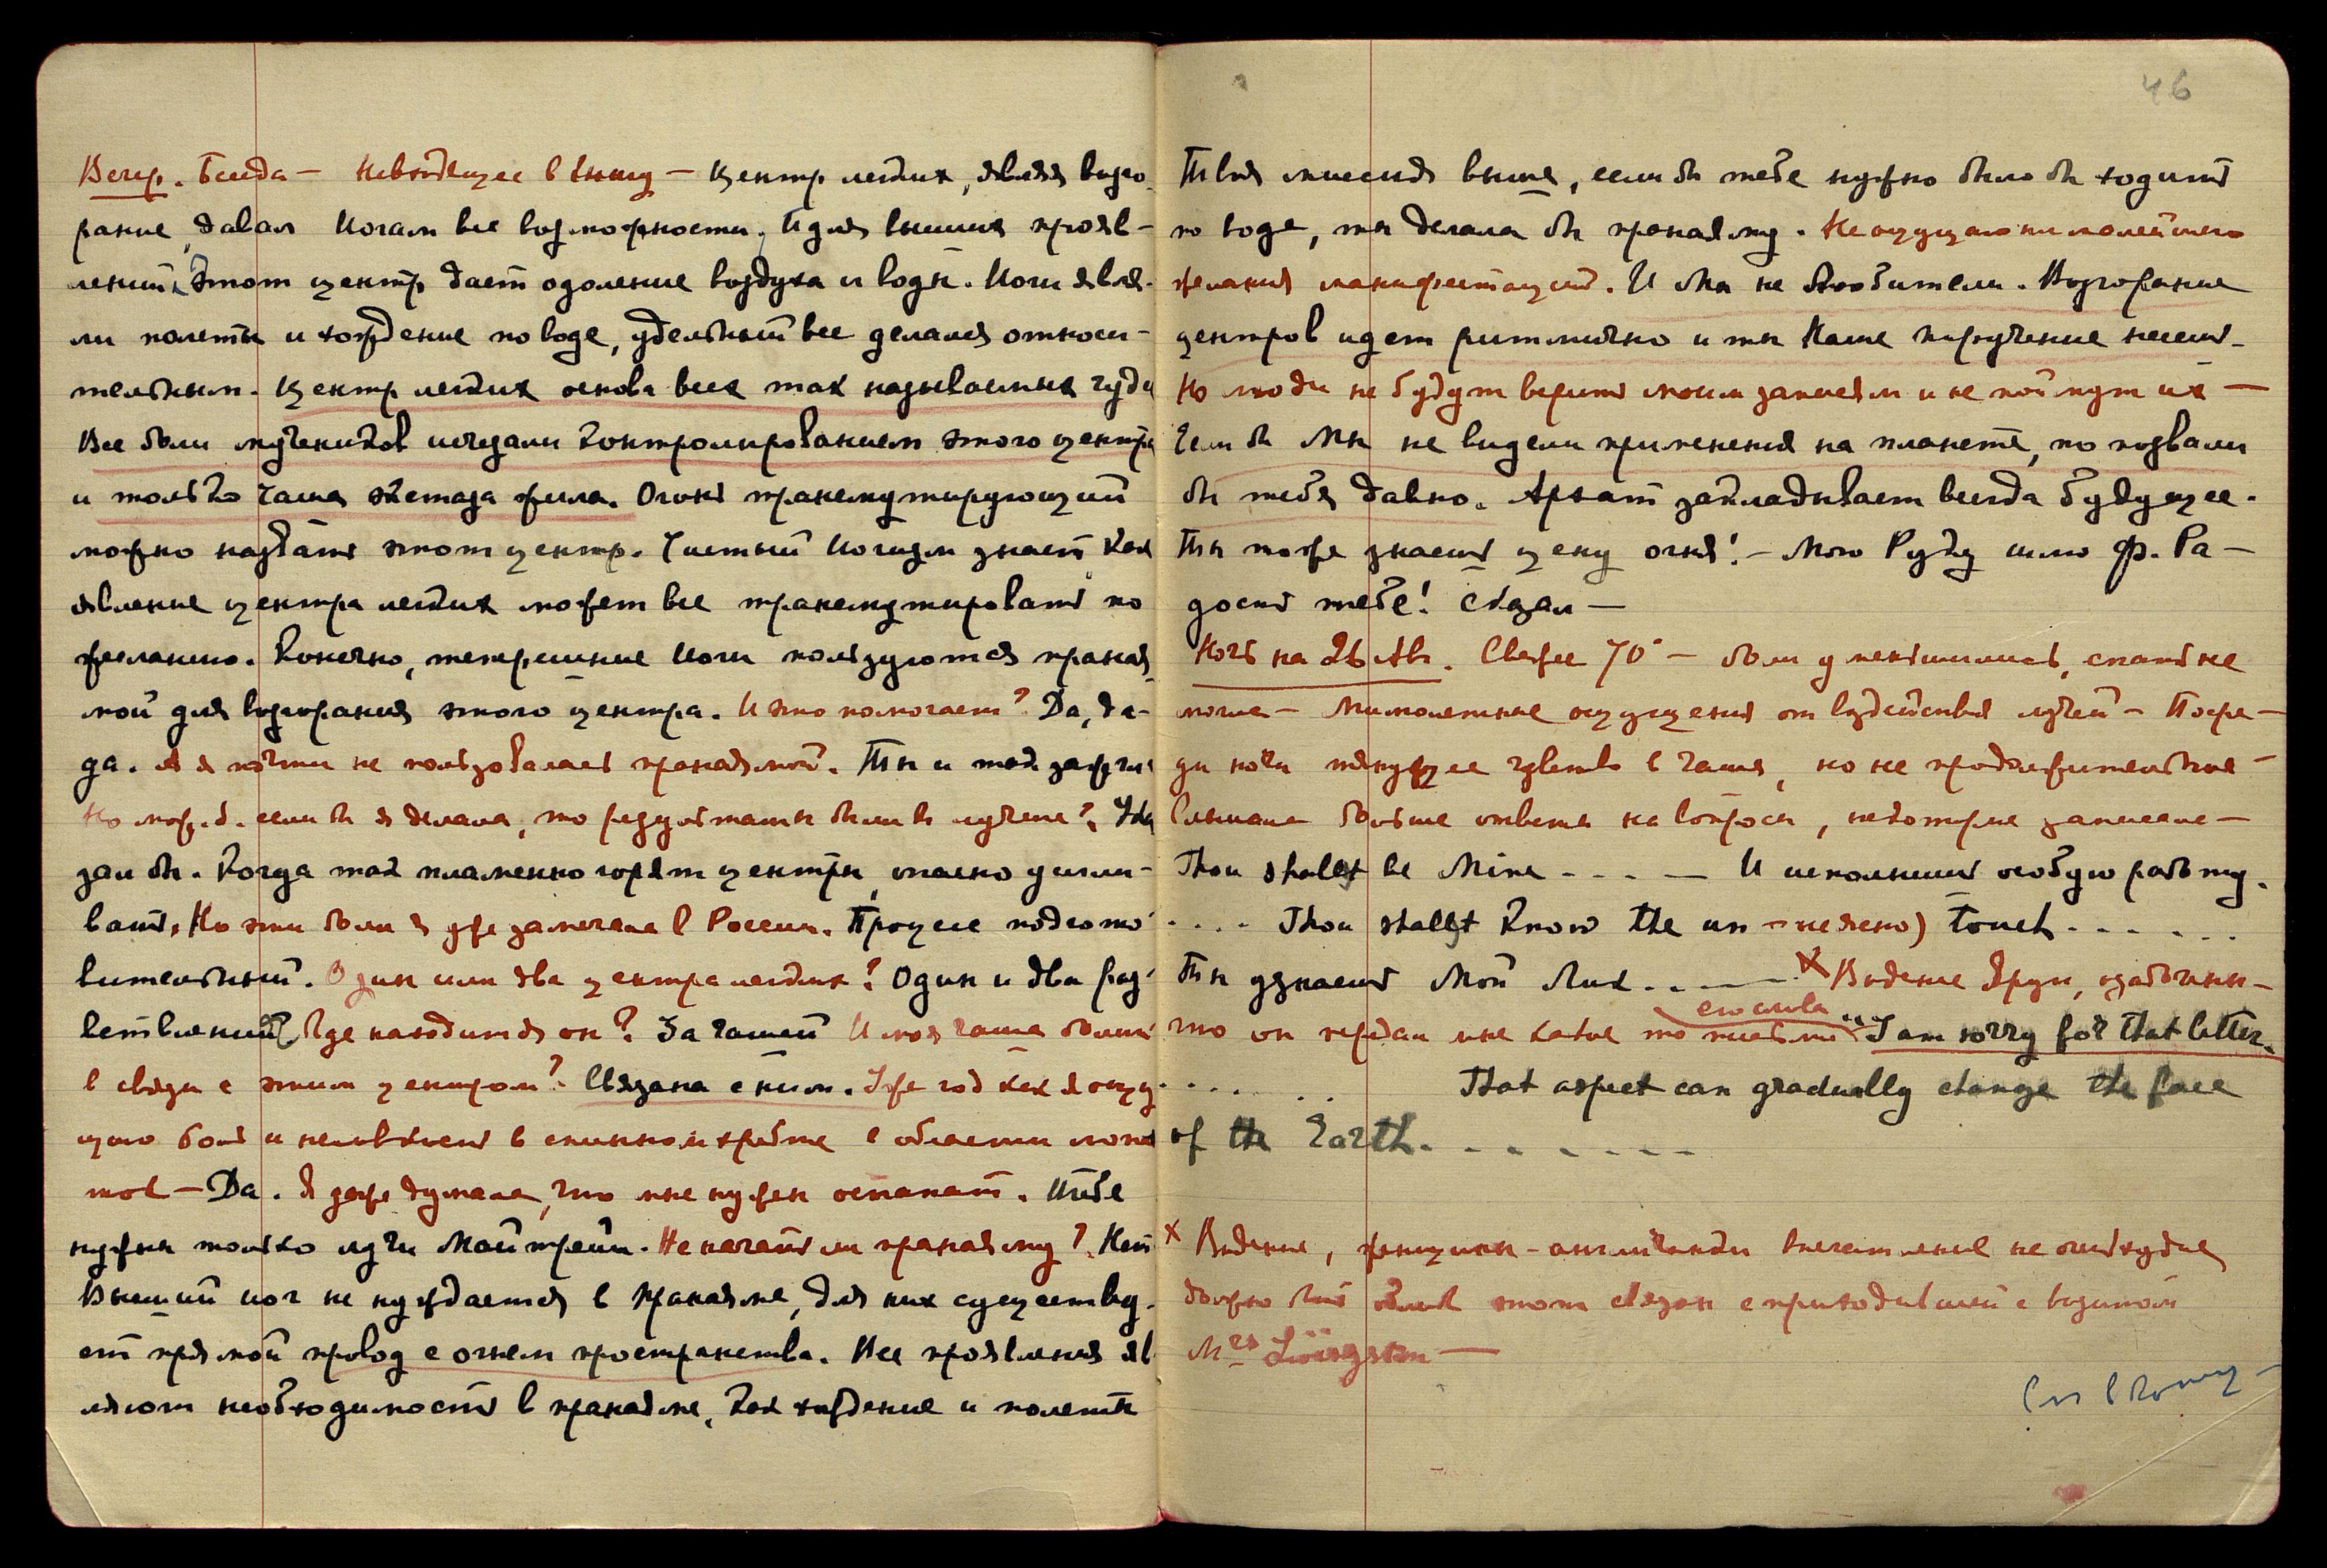 Вечер. Беседа — Невходящее в книгу — Центр легких, являя возго-
рание, давал Йогам все возможности. И для высших прояв-
лений. Этот центр дает одоление воздуха и воды. Йоги явля-
ли полеты и хождение по воде, удельный вес делался относи-
тельным. Центр легких основа всех так называемых чудес
Все боли мучеников исчезали контролированием этого центра
и только чаша экстаза жила. Огонь трансмутирующий
можно назвать этот центр. Истный Йогизм знает, как
явление центра легких может все трансмутировать по
желанию. Конечно, теперешние Йоги пользуются праная-
мой для возгорания этого центра. И это помогает? Да, да-
да. А я почти не пользовалась пранаямой. Ты и так зажгла
Но мож. б. если б я делала, то результаты были б лучше?
зал бы. Когда так пламенно горят центры, опасно усили-
вать. Но эти боли я уже замечала в России. Процесс подгото-
вительный. Один или два центра легких? Один и два раз-
ветвления. Где находится он? За чашей И моя чаша больше
в связи с этим центром? Связана с ним. Уже год как я ощу-
щаю боль и неловкость в спинном хребте в области
— Да. Я даже думала, что мне нужен остеопат. Тебе
нужны только лучи Майтрейи. Не начать ли пранаяму? Нет
Высший йог не нуждается в пранаяме, для них существу-
ет прямой провод с огнем пространства. Все проявления яв-
ляют необходимость в пранаяме, как хождение и полеты
46
Твоя миссия выше, если бы тебе нужно было бы ходить
по воде, ты делала бы пранаяму. Не ощущаю ни малейшего
желания манифестаций. И Мы не Любители. Возгорание
центров идет ритмично и ты Наше поручение несешь.
Но люди не будут верить моим записям и не поймут их —
Если бы Мы не видели применения на планете, то позвали
бы тебя давно. Архат закладывает всегда будущее.
Ты тоже знаешь цену огня! — Мою Руку шлю ф. Ра-
дость тебе! Сказал —
Ночь на 26 Авг. Свыше 70° — боли уменьшились, спать не
могла — Мимолетные ощущения от воздействия лучей — Посре-
ди ночи тянущее чувство в чаше, но не продолжительное —
Слышала больше ответы на вопросы, некоторые записала —
Thou shallst be Mine - - - — И исполнишь особую работу.
. . . . Thou shallst know the un — неясно) touch - - - - - -
Ты узнаешь Мой Лик - . — — x Видение Друга, озабочен-
его слова
что он передал мне какие то письма "I am sorry for that letter.
. . . . . That aspect can gradually change the face
of the Earth. - - - - - - -
x Видение, женщины-англичанки впечатление не
должно быть этот связан с приходившей с визитом
Mrs Livingston —